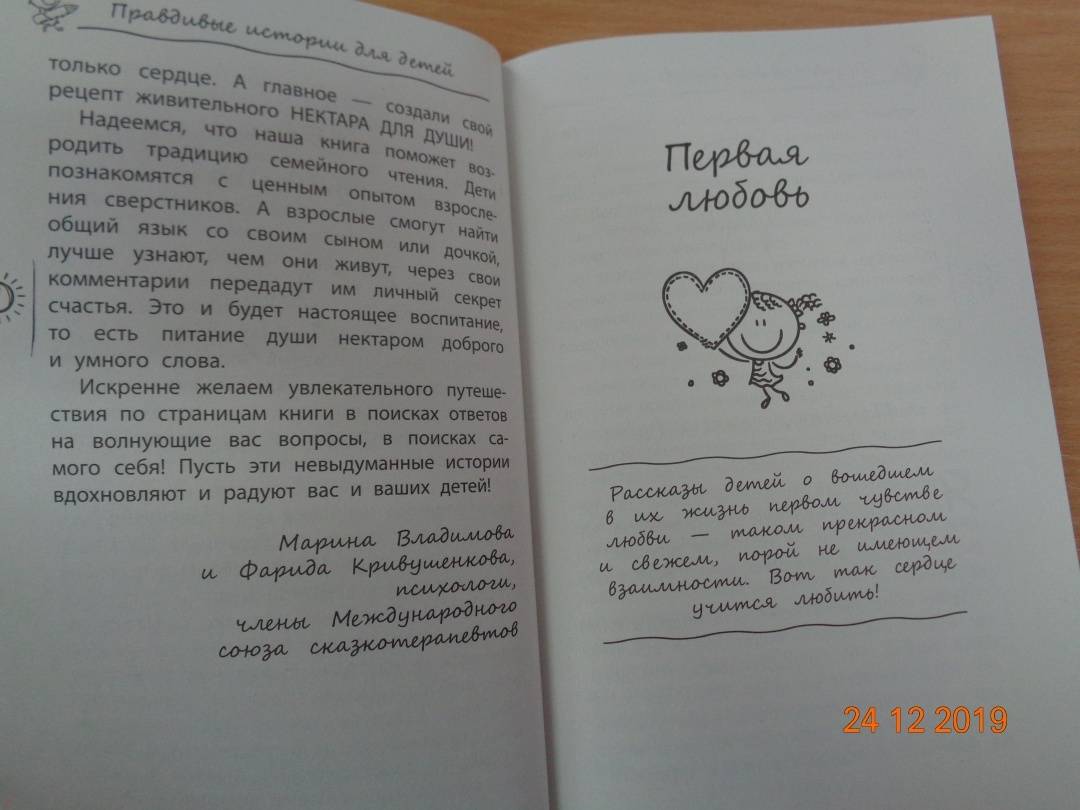 Правдивые истории для детей
только сердце. А главное — создали свой
рецепт живительного НЕКТАРА ДЛЯ ДУШИ!
Надеемся, что наша книга поможет воз-
родить традицию семейного чтения. Дети
познакомятся с ценным опытом взросле-
ния сверстников. А взрослые смогут найти
общий язык со своим сыном или дочкой,
лучше узнают, чем они живут, через свои
комментарии передадут им личный секрет
счастья. Это и будет настоящее воспитание,
то есть питание души нектаром доброго
и умного слова.
Искренне желаем увлекательного путеше-
ствия по страницам книги в поисках ответов
на волнующие вас вопросы, в поисках са-
мого себя! Пусть эти невыдуманные истории
вдохновляют и радуют вас и ваших детей!
Марина Владимова
и Фарида Кривушенкова,
психологи,
члены Международного
союза сказкотерапевтов
Первая
любовь
Рассказы детей о вошедшем
в их жизнь первом чувстве
любви — таком прекрасном
и свежем, порой не имеющем
взаимности. Вот так сердце
учится любить!
24 12 2019